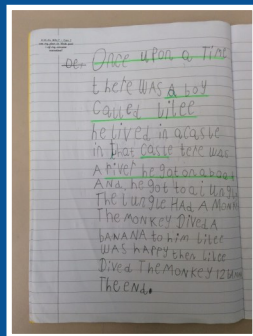 Once upon a Time
there was A boy
Called bilee
he lived in a casle
in that casle there was
A river he got on a boat
And he got to a Jungle
The Jungle HAD A MON
The MONKEY DiveD A
bANANA to him bilee
WAS HAPPY then bilee
DiveD The MONKEY 12
The end.